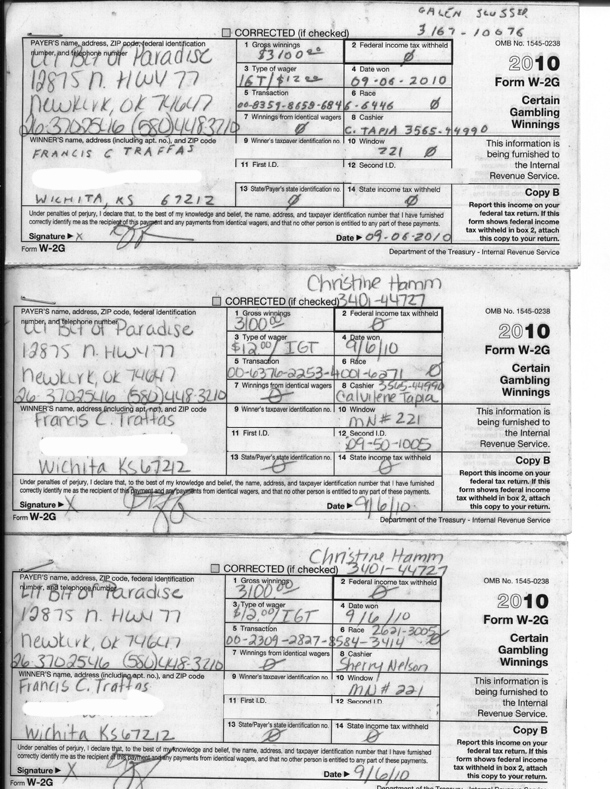 GALEN SLUSSER
3167-10076
CORRECTED (if checked)
OMB No. 1545-0238
PAYER'S name, address, ZIP code, federal identification number, and telephone number
Lil Bit of Paradise
12875 N. HWY 77
Newkirk, OK 74647
26-3702546 (580)448-3210
1 Gross winnings
$3100.00
2 Federal income tax withheld
0
3 Type of wager
IGT/$12.00
4 Date won
09-06-2010
5 Transaction
00-8359-8659-6846-6446
6 Race
0
7 Winnings from identical wagers
0
8 Cashier
C. TAPIA 3565-44990
WINNER'S name, address (including apt. no.), and ZIP code
FRANCIS C TRAFFAS
WICHITA, KS 67212
9 Winner's taxpayer identification no.
10 Window
221 0
11 First I.D.
12 Second I.D.
13 State/Payer's state identification no.
0
14 State income tax withheld
0
2010
Form W-2G
Certain Gambling Winnings
This information is being furnished to the Internal Revenue Service.
Copy B
Report this income on your federal tax return. If this form shows federal income tax withheld in box 2, attach this copy to your return.
Under penalties of perjury, I declare that, to the best of my knowledge and belief, the name, address, and taxpayer identification number that I have furnished
correctly identify me as the recipient of this payment and any payments from identical wagers, and that no other person is entitled to any part of these payments.
Signature ▶ X
Date ▶ 09-06-2010
Form W-2G
Department of the Treasury - Internal Revenue Service
Christine Hamm
3401-44727
CORRECTED (if checked)
OMB No. 1545-0238
PAYER'S name, address, ZIP code, federal identification number, and telephone number
Lil Bit of Paradise
12875 N. HWY 77
Newkirk, OK 74647
26-3702546 (580)448-3210
1 Gross winnings
3100.00
2 Federal income tax withheld
0
3 Type of wager
$12.00/ IGT
4 Date won
9/6/10
5 Transaction
00-6376-2253-4001-6271
6 Race
0
7 Winnings from identical wagers
0
8 Cashier 3565-44990
Calvilene Tapia
WINNER'S name, address (including apt. no.), and ZIP code
Francis C. Traffas
Wichita KS 67212
9 Winner's taxpayer identification no.
10 Window
MN# 221
11 First I.D.
12 Second I.D.
09-50-1005
13 State/Payer's state identification no.
0
14 State income tax withheld
0
2010
Form W-2G
Certain Gambling Winnings
This information is being furnished to the Internal Revenue Service.
Copy B
Report this income on your federal tax return. If this form shows federal income tax withheld in box 2, attach this copy to your return.
Under penalties of perjury, I declare that, to the best of my knowledge and belief, the name, address, and taxpayer identification number that I have furnished
correctly identify me as the recipient of this payment and any payments from identical wagers, and that no other person is entitled to any part of these payments.
Signature ▶ X
Date ▶ 9/6/10
Form W-2G
Department of the Treasury - Internal Revenue Service
Christine Hamm
3401-44727
CORRECTED (if checked)
OMB No. 1545-0238
PAYER'S name, address, ZIP code, federal identification number, and telephone number
Lil Bit of Paradise
12875 N. HWY 77
Newkirk, OK 74647
26-3702546 (580)448-3210
1 Gross winnings
3100.00
2 Federal income tax withheld
0
3 Type of wager
$12.00/ IGT
4 Date won
9/6/10
5 Transaction
00-2309-2827-8584-3414
6 Race 2621-3005
0
7 Winnings from identical wagers
0
8 Cashier
Sherry Nelson
WINNER'S name, address (including apt. no.), and ZIP code
Francis C. Traffas
Wichita KS 67212
9 Winner's taxpayer identification no.
10 Window
MN# 221
11 First I.D.
12 Second I.D.
13 State/Payer's state identification no.
0
14 State income tax withheld
0
2010
Form W-2G
Certain Gambling Winnings
This information is being furnished to the Internal Revenue Service.
Copy B
Report this income on your federal tax return. If this form shows federal income tax withheld in box 2, attach this copy to your return.
Under penalties of perjury, I declare that, to the best of my knowledge and belief, the name, address, and taxpayer identification number that I have furnished
correctly identify me as the recipient of this payment and any payments from identical wagers, and that no other person is entitled to any part of these payments.
Signature ▶ X
Date ▶ 9/6/10
Form W-2G
Department of the Treasury - Internal Revenue Service